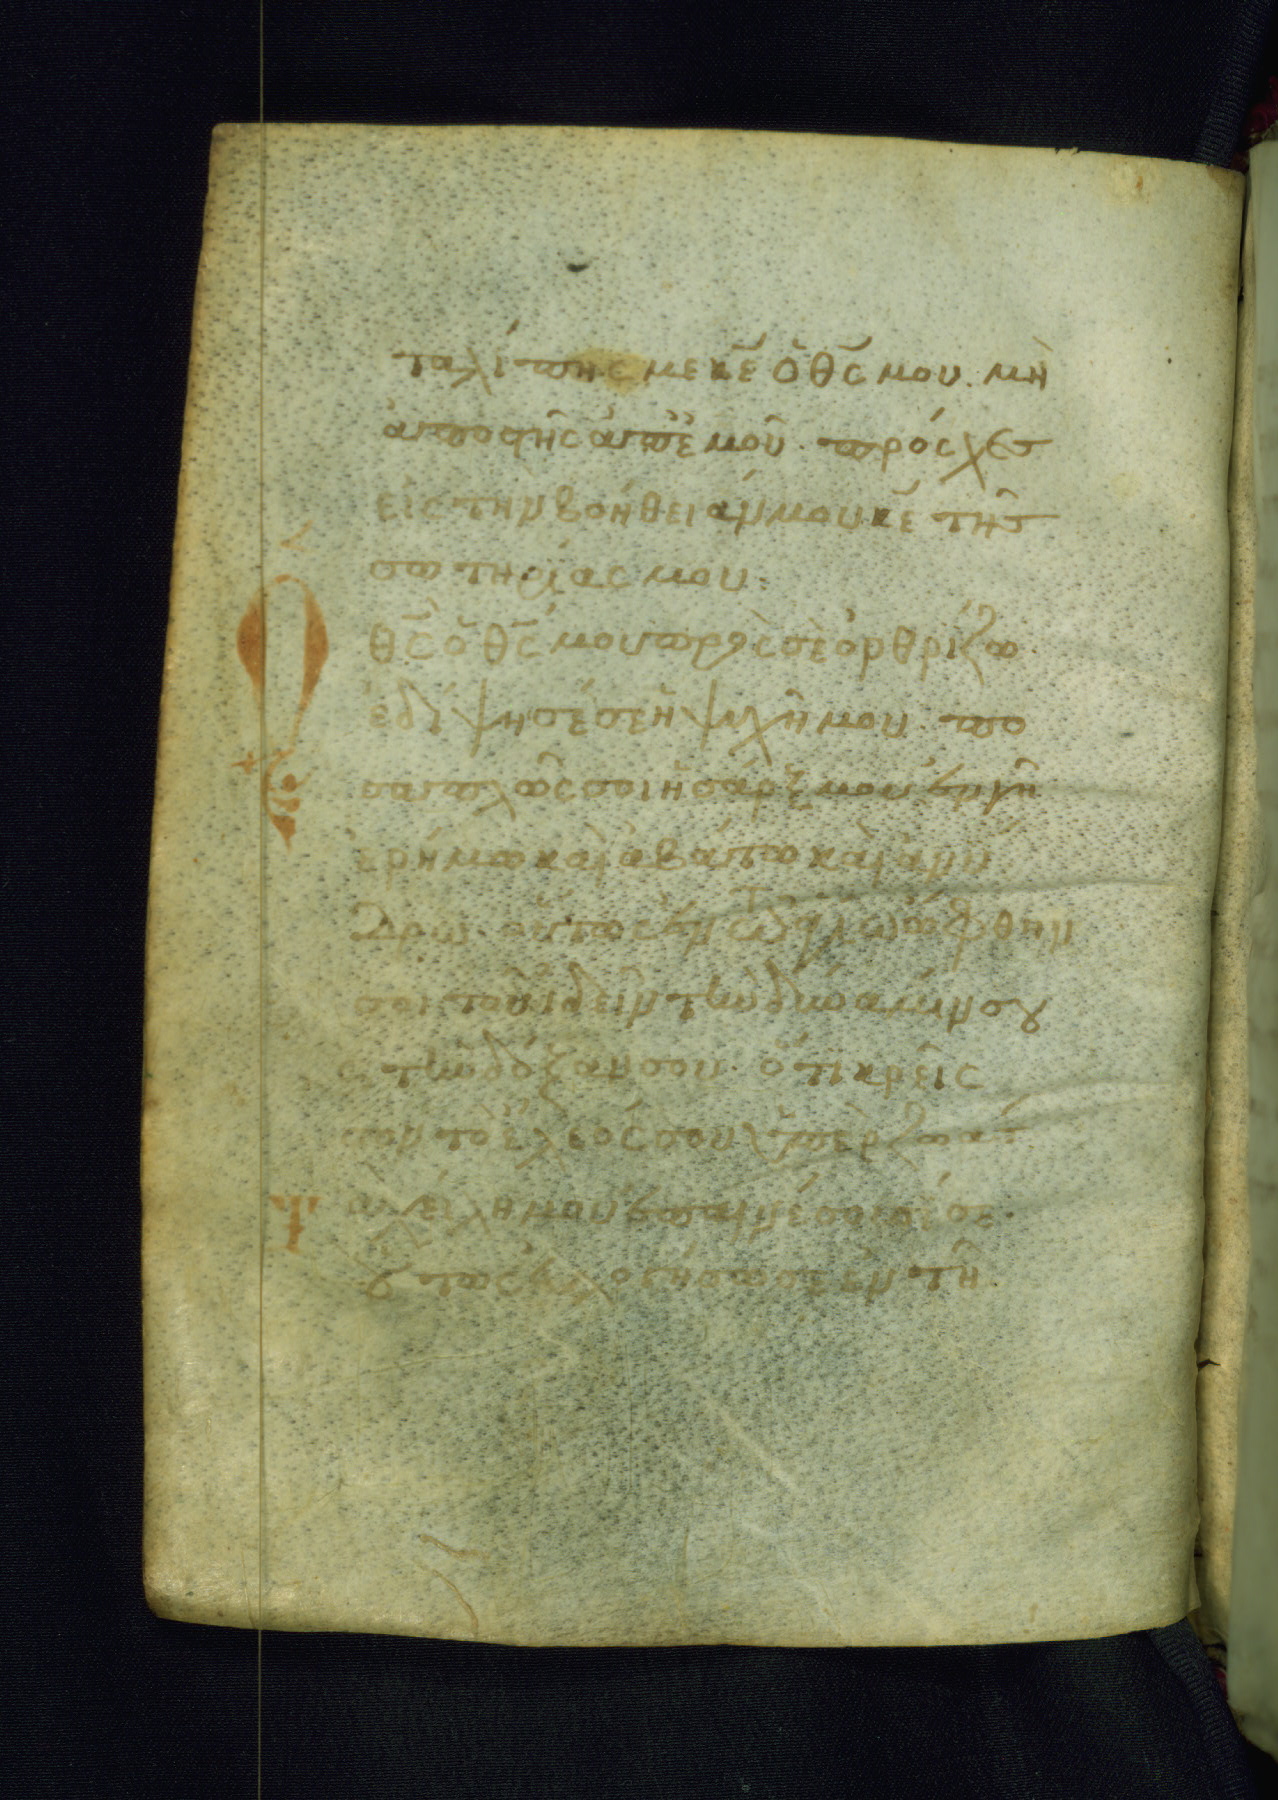 ταλίπης με κε̄ ὁ θς̄ μου. μὴ
ἀποστῆς ἀπ' ἐμοῦ. πρόσχες
εἰς τὴν βοήθειάν μου κε̄ τῆς
σωτηρίας μου.
Ὁ θς̄ ὁ θς̄ μου πρὸς σὲ ὀρθρίζω.
ἐδίψησέ σε ἡ ψυχή μου. πο
σαπλῶς σοι ἡ σάρξ μου ἐν γῆ
ἐρήμω καὶ ἀβάτω καὶ ἀνύ
δρω. οὕτως ἐν τῶ ἁγίω ὤφθην
σοι τοῦ ἰδεῖν τὴν δύναμίν σου
καὶ τὴν δόξαν σου. ὅτι κρεῖς
σον τὸ ἔλεός σου ὑπὲρ ζωάς.
Τὰ χείλη μου ἐπαινέσουσί σε.
οὕτως εὐλογήσω σε ἐν τῆ